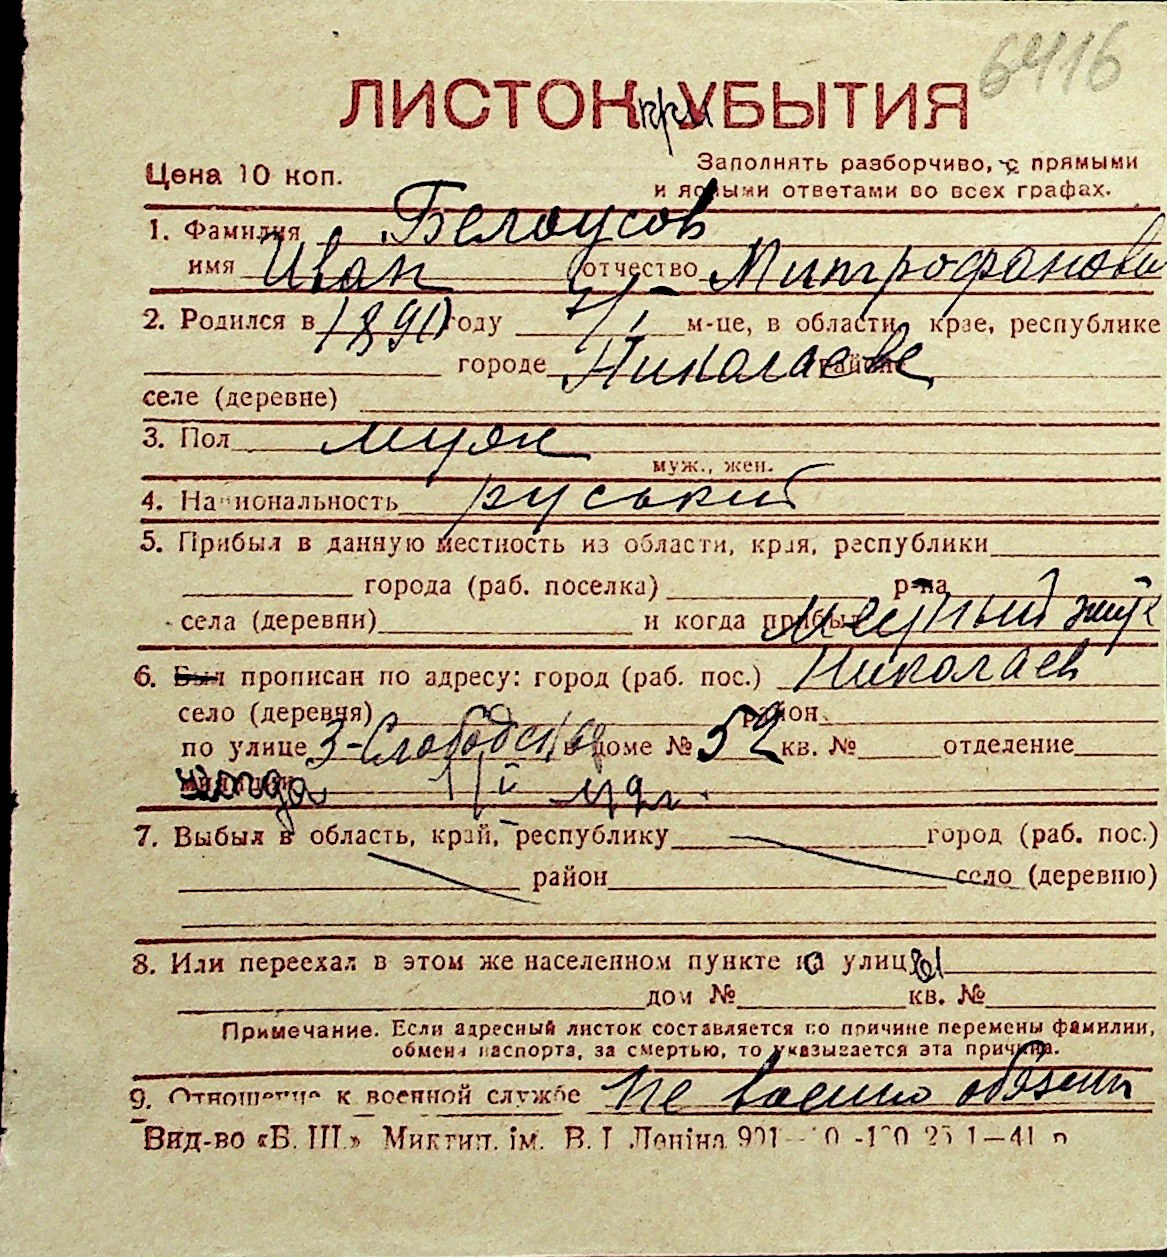 6416
ЛИСТОК при УБЫТИЯ
Цена 10 коп.
Заполнять разборчиво, с прямыми
и ясными ответами во всех графах.
1. Фамилия Белоусов
имя Иван отчество Митрофанови
2. Родился в 1890 году м-це, в области, крае, республике
городе Николаеве районе
селе (деревне)
3. Пол муж
муж., жен.
4. Национальность руський
5. Прибыл в данную местность из области, края, республики
города (раб. поселка) р-на
села (деревни) и когда прибыл Месный жит
6. Был прописан по адресу: город (раб. пос.) Николаев
село (деревня) район
по улице 3-Слободская в доме № 52 кв. № отделение
милиции
7. Выбыл в область, край, республику город (раб. пос.)
район село (деревню)
8. Или переехал в этом же населенном пункте на улицы
дом № кв. №
Примечание. Если адресный листок составляется по причине перемены фамилии,
обмена паспорта, за смертью, то указывается эта причина.
9. Отношение к военной службе Не военно обязани
Вид-во «Б. Ш.» Миктип. ім. В. І Леніна